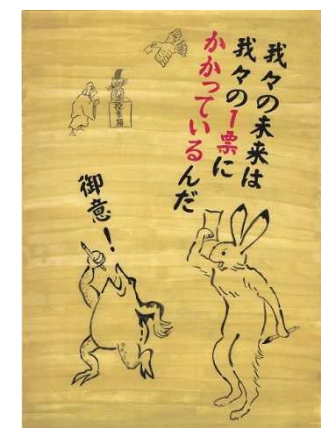 我々の未来は
我々の1票に
かかっているんだ
御意!
投票箱